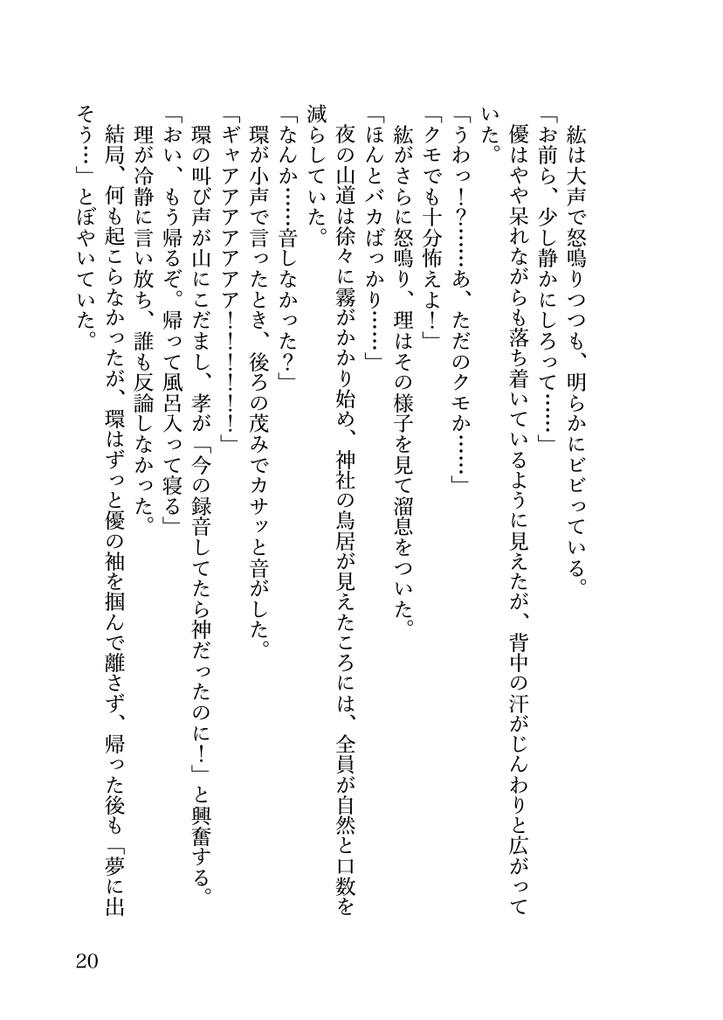 紘は大声で怒鳴りつつも、明らかにビビっている。
「お前ら、少し静かにしろって……」
　優はやや呆れながらも落ち着いているように見えたが、背中の汗がじんわりと広がって
いた。
「うわっ！？……あ、ただのクモか……」
「クモでも十分怖えよ！」
　紘がさらに怒鳴り、理はその様子を見て溜息をついた。
「ほんとバカばっかり……」
　夜の山道は徐々に霧がかかり始め、神社の鳥居が見えたころには、全員が自然と口数を
減らしていた。
「なんか……音しなかった？」
　環が小声で言ったとき、後ろの茂みでカサッと音がした。
「ギャアアアアアアア！！！！！！」
　環の叫び声が山にこだまし、孝が「今の録音してたら神だったのに！」と興奮する。
「おい、もう帰るぞ。帰って風呂入って寝る」
　理が冷静に言い放ち、誰も反論しなかった。
　結局、何も起こらなかったが、環はずっと優の袖を掴んで離さず、帰った後も「夢に出
そう…」とぼやいていた。
20